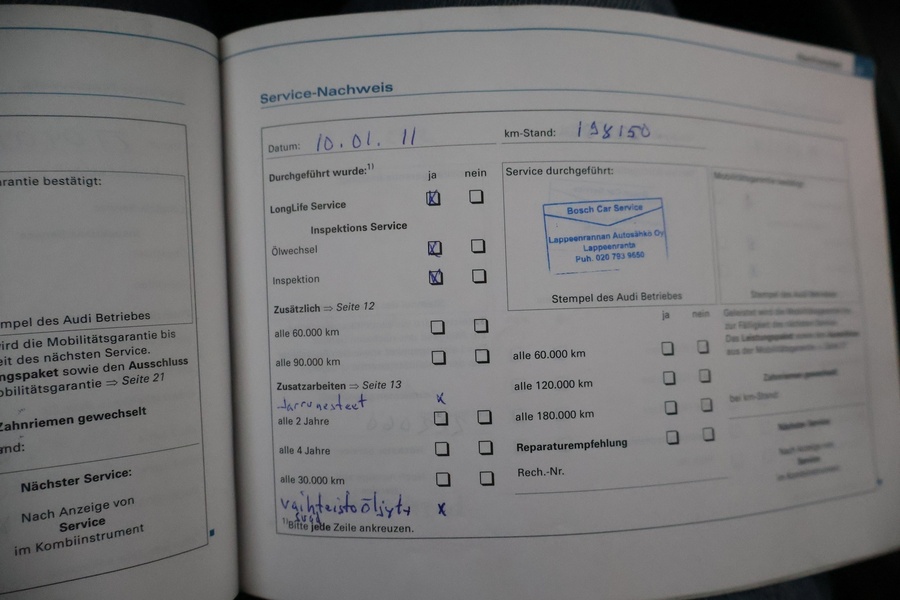 arantie bestätigt:
mpel des Audi Betriebes
ird die Mobilitätsgarantie bis
eit des nächsten Service.
ngspaket sowie den Ausschluss
obilitätsgarantie ⇒ Seite 21
Zahnriemen gewechselt
and:
Nächster Service:
Nach Anzeige von
Service
im Kombiinstrument
Service-Nachweis
Datum: 10.01.11
km-Stand: 198150
Durchgeführt wurde:1)
ja nein
LongLife Service
Inspektions Service
Ölwechsel
Inspektion
Zusätzlich ⇒ Seite 12
alle 60.000 km
alle 90.000 km
Zusatzarbeiten ⇒ Seite 13
Jarrunesteet x
alle 2 Jahre
alle 4 Jahre
alle 30.000 km
vaihteistoöljyt x
1)Bitte jede Zeile ankreuzen.
Service durchgeführt:
Bosch Car Service
Lappeenrannan Autosähkö Oy
Lappeenranta
Puh. 020 793 9650
Stempel des Audi Betriebes
ja nein
alle 60.000 km
alle 120.000 km
alle 180.000 km
Reparaturempfehlung
Rech.-Nr.
Mobilitätsgarantie bestätigt:
Stempel des Audi Betriebes
Zahnriemen gewechselt
bei km-Stand:
Nächster Service:
Nach Anzeige von
Service
im Kombiinstrument